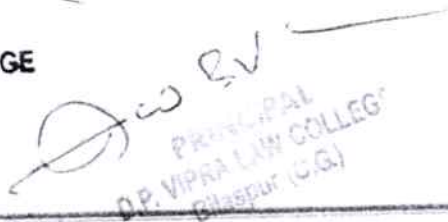 GE
PRINCIPAL
D.P. VIPRA LAW COLLEG
Bilaspur (C.G.)